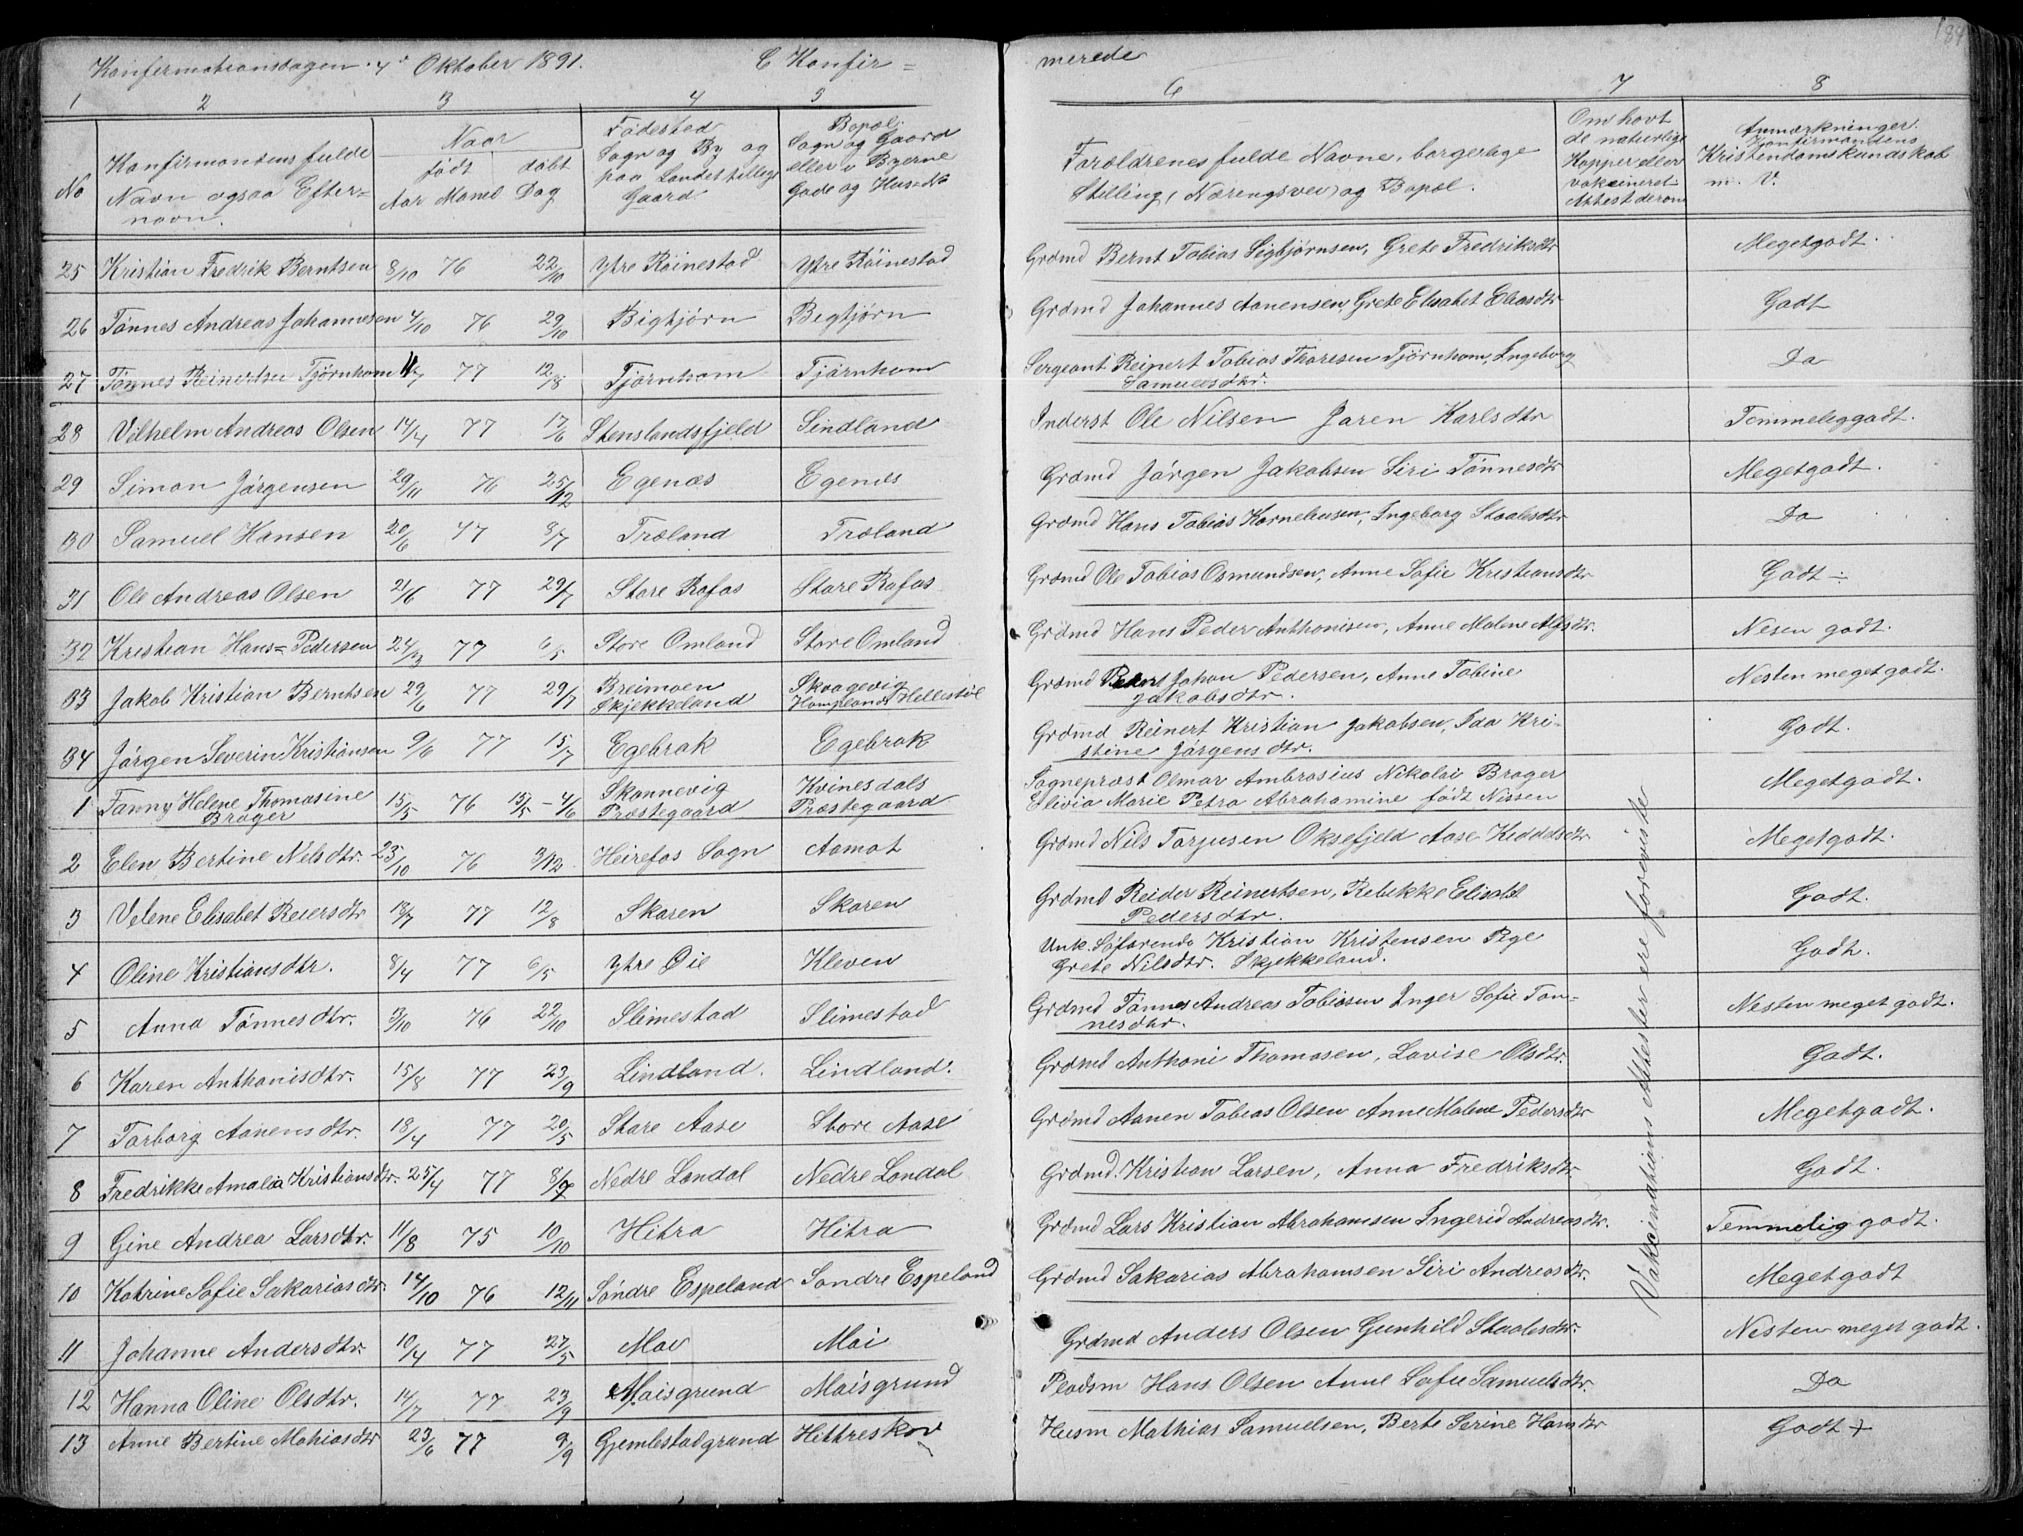 184
Konfirmationsdagen 4de Oktober 1891. C Konfir=
merede
1 2 3 4 5 6 7 8
No
Konfirmandens fulde
Navn ogsaa Efter=
navn.
Naar
født døbt
Aar Maned Dag
Fødested
Sogn og By og
paa Landet tillige
Gaard
Bopæl.
Sogn og Gaard
eller i Byerne
Gade og Hus=No
Forældrenes fulde Navne, borgerlige
Stilling, (Næringsvei) og Bopæl.
Om havt
de naturlige
Kopper eller
vakcineret
Attest derom
Anmærkninger.
Konfirmandens
Kristendomskundskab
m. V.
25 Kristian Fredrik Berntsen 8/10 76 22/10 Ytre Røinestad Ytre Røinestad Grdmd Bernt Tobias Sigbjørnsen, Grete Fredriksdtr Megetgodt.
26 Tønnes Andreas Johannesen 4/10 76 29/10 Bigtjørn Bigtjørn Grdmd Johannes Aanensen, Grete Elisabet Eliasdtr Godt
27 Tønnes Reinertsen Tjørnhom 11/7 77 12/8 Tjørnhom Tjørnhom Sergeant Reinert Tobias Thoresen Tjørnhom, Ingeborg
Samuelsdtr. Do
28 Vilhelm Andreas Olsen 14/4 77 17/6 Stenslandsfjeld Sindland Inderst Ole Nilsen Jaren Karlsdtr Temmeliggodt.
29 Simon Jørgensen 29/11 76 25/12 Egenæs Egenæs Grdmd Jørgen Jakobsen Siri Tønnesdtr Megetgodt.
30 Samuel Hansen 20/6 77 8/7 Træland Træland Grdmd Hans Tobias Korneliusen, Ingeborg Staalesdtr Do
31 Ole Andreas Olsen 21/6 77 29/7 Store Rafos Store Rafos Grdmd Ole Tobias Osmundsen, Anne Sofie Kristiansdtr Godt ÷
32 Kristian Hans=Pedersen 24/3 77 6/5 Store Omland Store Omland Grdmd Hans Peder Anthonisen, Anne Malene Alfsdtr. Nesen godt.
33 Jakob Kristian Berntsen 29/6 77 29/7 Breimoen
Skjekkeland Skaagevig
Hompland Hellestøl Grdmd Bernt Johan Pedersen, Anne Tobine
Jakobsdtr. Nesten meget godt.
34 Jørgen Severin Kristiansen 9/6 77 15/7 Egebrok Egebrok Grdmd Reinert Kristian Jakobsen, Ida Kri-
stine Jørgensdtr. Godt.
1 Fanny Helene Thomasine
Brager 15/5 76 15/5-4/6 Skonnevig
Præstegaard Kvinesdals
Præstegaard Sogneprest Olmar Ambrosius Nikolai Brager
Elivia Marie Petra Abrahamine født Nissen Megetgodt.
2 Elen Bertine Nilsdtr. 23/10 76 3/12 Heirefos Sogn Aamot Grdmd Nils Torjusen Oksefjeld Aase Keddelsdtr Megetgodt.
3 Velene Elisabet Reiersdtr 13/7 77 12/8 Skoren Skoren Grdmd Reider Reinertsen, Rebekke Elisabet
Pedersdtr. Godt.
4 Oline Kristiansdtr. 8/4 77 6/5 Ytre Øie Kleven Unk. Søfarende Kristian Kristensen Rege
Grete Nilsdtr. Skjekkeland. Godt.
5 Anna Tønnesdtr. 3/10 76 22/10 Slimestad Slimestad Grdmd Tønnes Andreas Tobiasen Inger Sofie Tøn=
nesdtr. Nesten meget godt.
6 Karen Anthonisdtr. 15/8 77 23/9 Lindland. Lindland. Grdmd Anthoni Thomasen, Lovise Olsdtr. Godt.
7 Torborg Aanensdtr. 18/4 77 20/5 Store Aase Store Aase Grdmd Aanen Tobias Olsen Anne Malene Pedersdtr Megetgodt.
8 Fredrikke Amalia Kristiansdtr. 25/4 77 8/7 Nedre Londal Nedre Londal Grdmd. Kristian Larsen, Anna Fredriksdtr. Godt.
9 Gine Andrea Larsdtr. 11/8 75 10/10 Hitra Hitra Grdmd Lars Kristian Abrahamsen Ingerid Andreasdtr. Temmelig godt.
10 Katrine Sofie Sakariasdtr. 14/10 76 12/11 Søndre Espeland Søndre Espeland Grdmd Sakarias Abrahamsen Siri Andreasdtr. Megetgodt
11 Johanne Andersdtr. 10/4 77 27/5 Moi Moi Grdmd Anders Olsen Gunhild Staalesdtr. Nesten meget godt.
12 Hanna Oline Olsdtr. 14/7 77 23/9 Moisgrund Moisgrund Pladsm Hans Olsen Anne Sofie Samuelsdtr. Do
13 Anne Bertine Mathiasdtr 23/6 77 9/9 Gjemlestadgrund Hittreskov Husm Mathias Samuelsen, Berte Serine Hansdtr Godt +
Vakcinations Attester ere foreviste